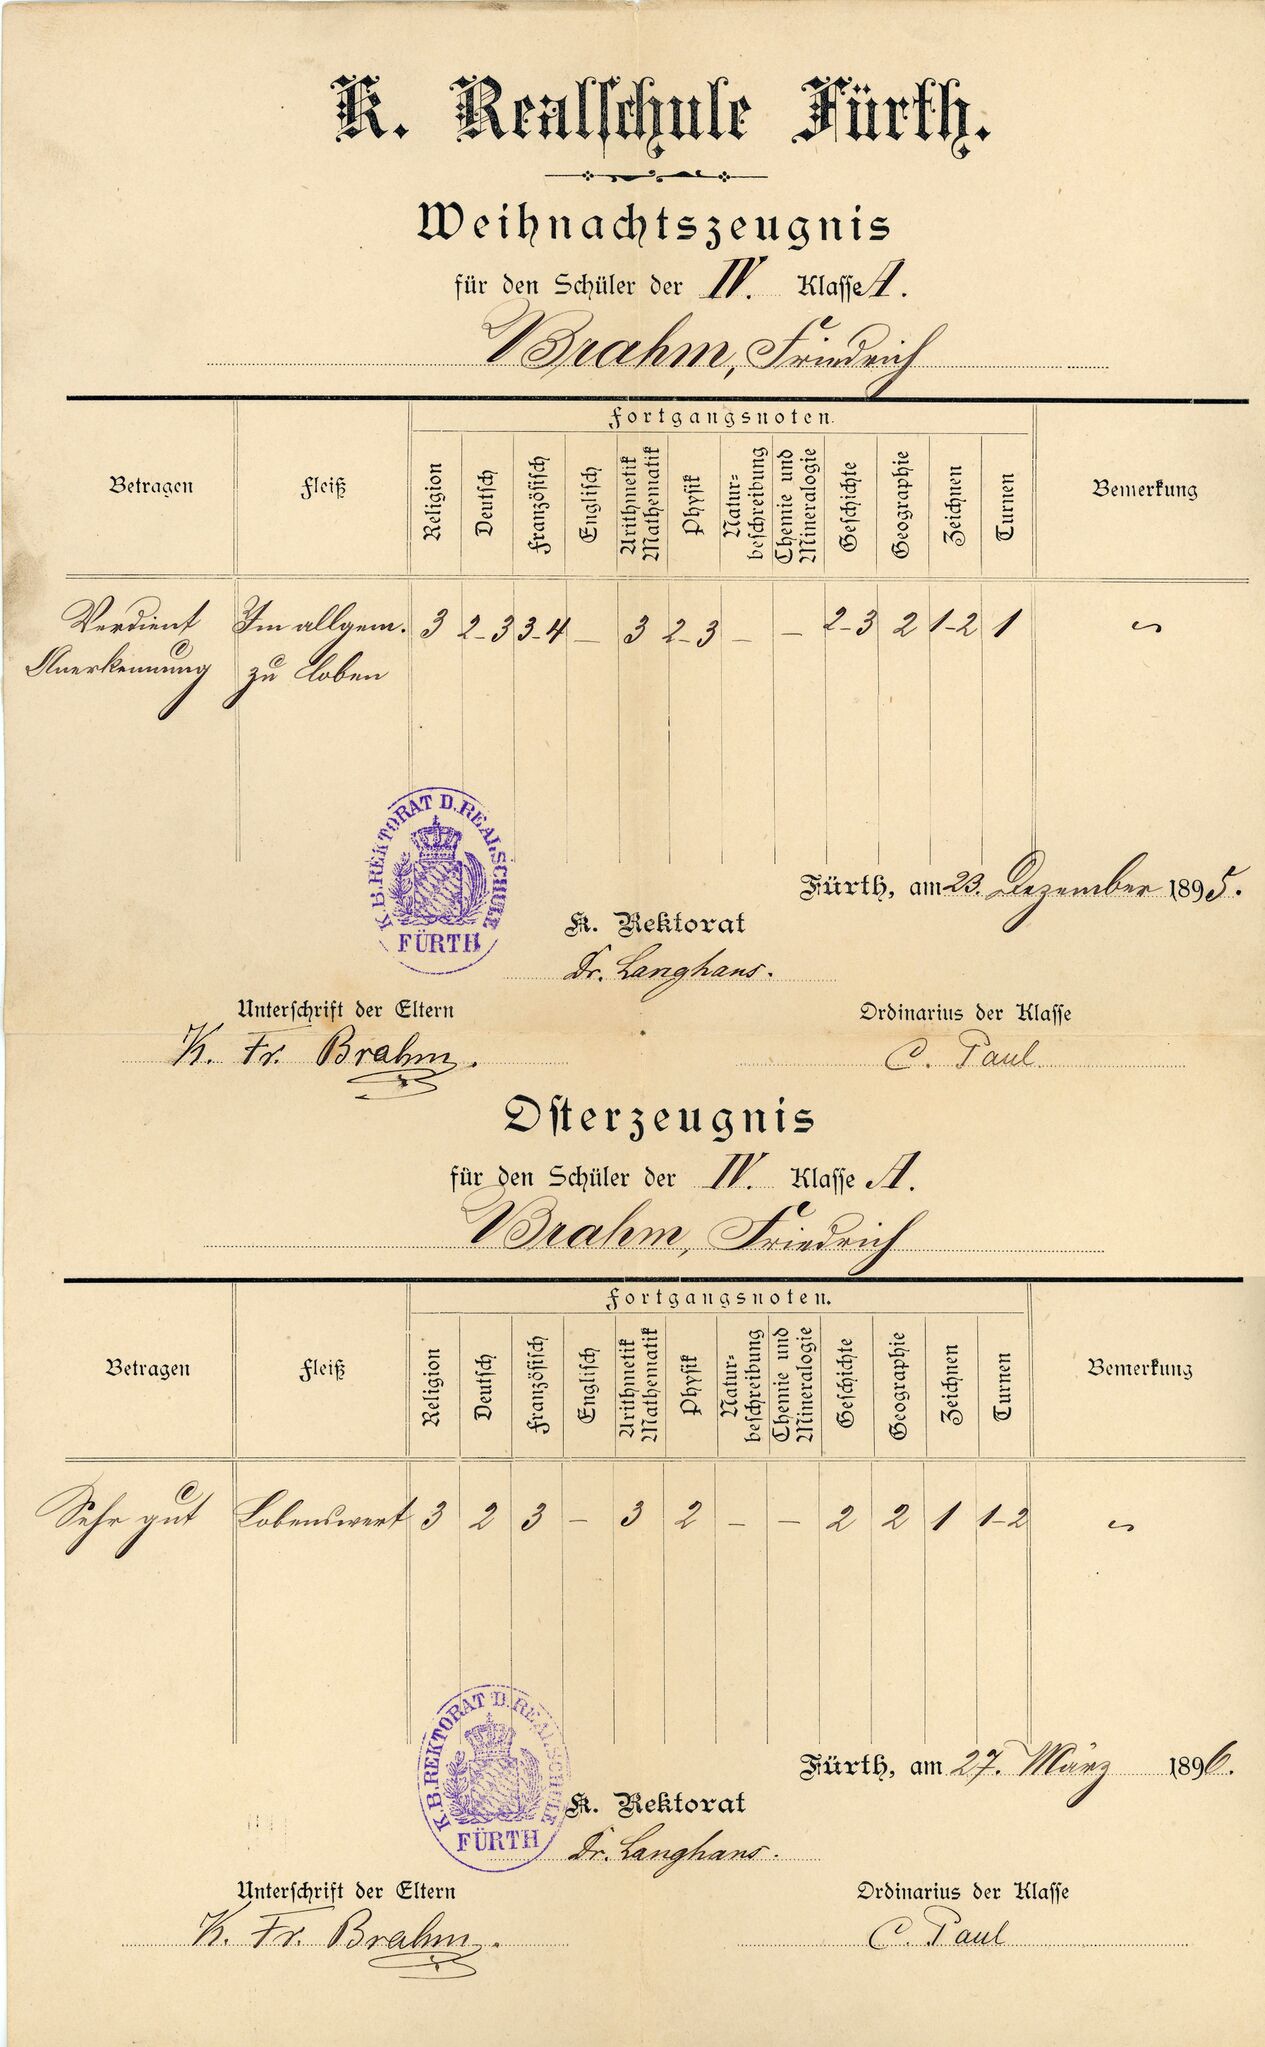 K. Realschule Fürth.
Weihnachtszeugnis
für den Schüler der IV. Klasse A.
Brahm, Friedrich
Fortgangsnoten.
Betragen Fleiß Religion Deutsch Französisch Englisch Arithmetik Mathematik Physik Natur-beschreibung Chemie und Mineralogie Geschichte Geographie Zeichnen Turnen Bemerkung
Verdient Im allgem. 3 2-3 3-4 — 3 2-3 — — 2-3 2 1-2 1
Anerkennung zu loben
K.B.REKTORAT D.REALSCHULE
FÜRTH
Fürth, am 23. Dezember 1895.
K. Rektorat
Dr. Langhans.
Unterschrift der Eltern Ordinarius der Klasse
K. Fr. Brahm. C. Paul.
Osterzeugnis
für den Schüler der IV. Klasse A.
Brahm, Friedrich
Fortgangsnoten.
Betragen Fleiß Religion Deutsch Französisch Englisch Arithmetik Mathematik Physik Natur-beschreibung Chemie und Mineralogie Geschichte Geographie Zeichnen Turnen Bemerkung
Sehr gut Lobenswert 3 2 3 — 3 2 — — 2 2 1 1-2
K.B.REKTORAT D.REALSCHULE
FÜRTH
Fürth, am 27. März 1896.
K. Rektorat
Dr. Langhans.
Unterschrift der Eltern Ordinarius der Klasse
K. Fr. Brahm. C. Paul